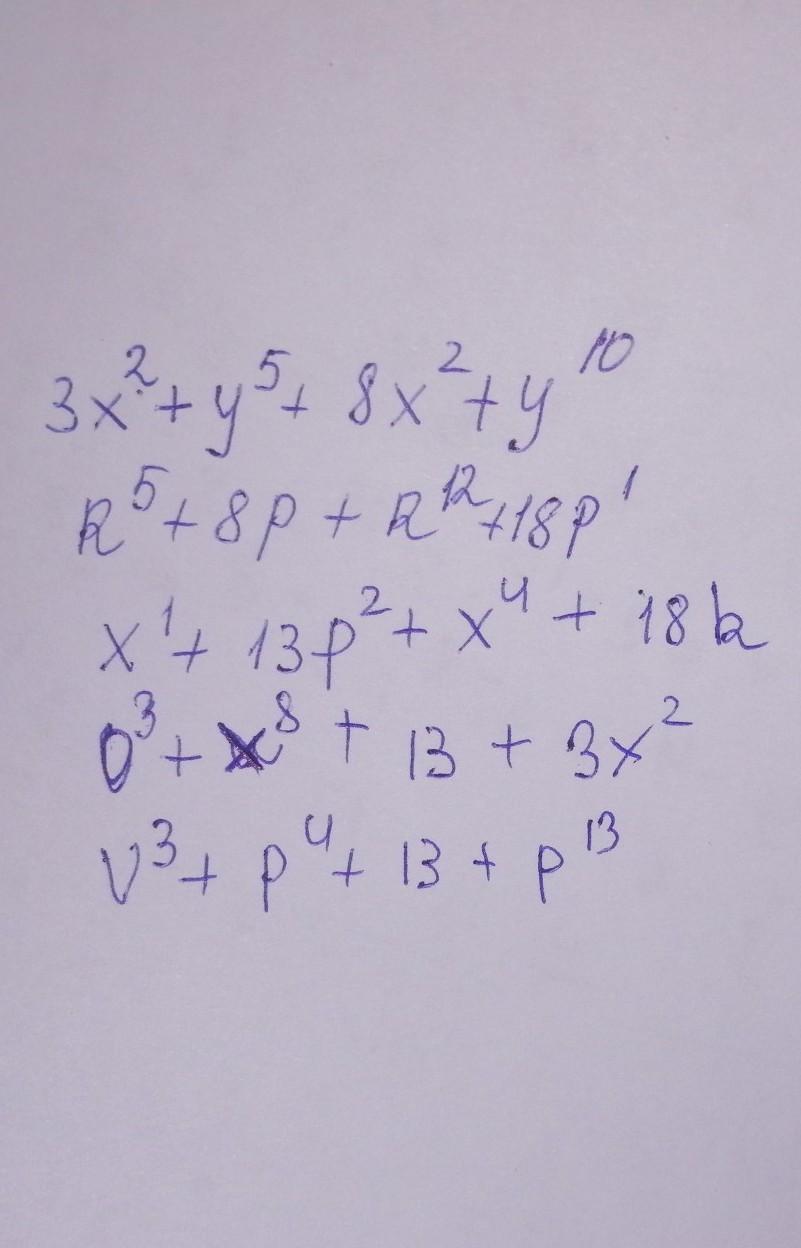 3x² + y⁵ + 8x² + y¹⁰
R⁵ + 8p + R¹² + 18p¹
x¹ + 13p² + x⁴ + 18k
0³ + x⁸ + 13 + 3x²
V³ + p⁴ + 13 + p¹³